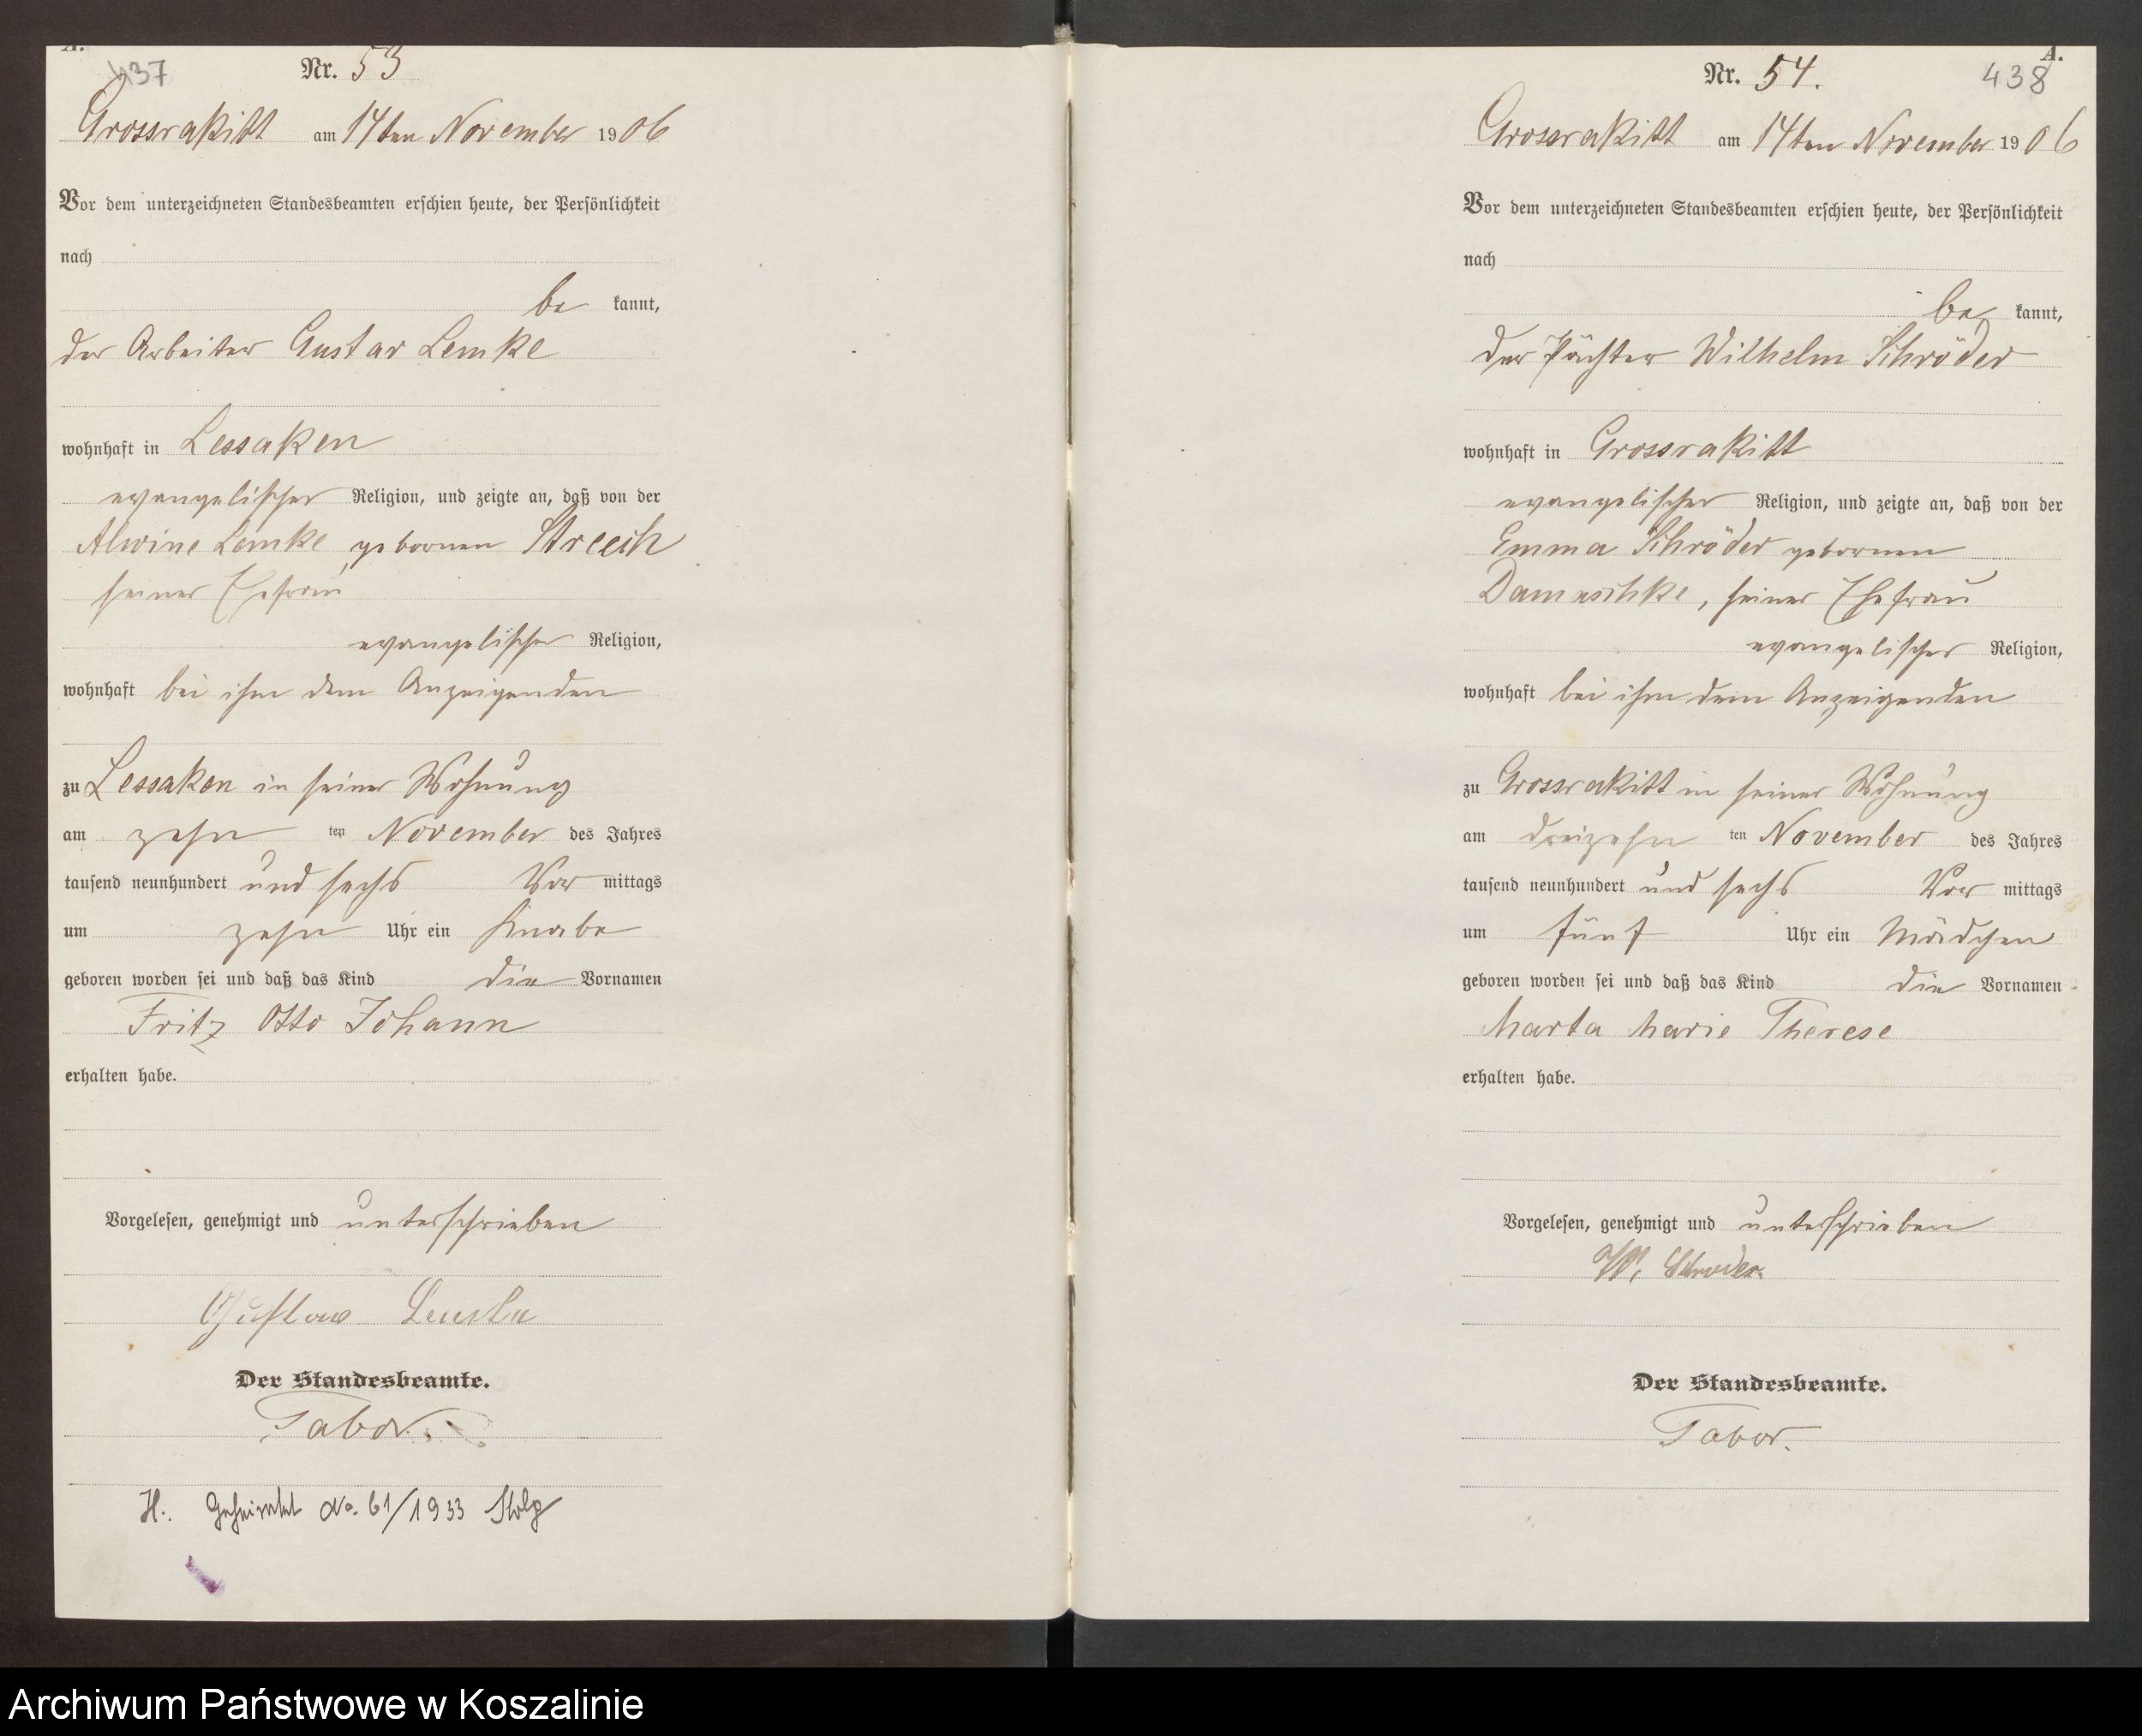 A.
437
Nr. 53
Grossrakitt am 14ten November 1906
Vor dem unterzeichneten Standesbeamten erschien heute, der Persönlichkeit
nach
be kannt,
der Arbeiter Gustav Lemke
wohnhaft in Lessaken
evangelischer Religion, und zeigte an, daß von der
Alwine Lemke geborenen Streech
seiner Ehefrau
evangelischer Religion,
wohnhaft bei ihm dem Anzeigenden
zu Lessaken in seiner Wohnung
am zehn ten November des Jahres
tausend neunhundert und sechs Vor mittags
um zehn Uhr ein Knabe
geboren worden sei und daß das Kind die Vornamen
Fritz Otto Johann
erhalten habe.
Vorgelesen, genehmigt und unterschrieben
Gustav Lemke
Der Standesbeamte.
Tabor.
H. Geheiratet No. 61/1933 Stolp
A.
438
Nr. 54.
Grossrakitt am 14ten November 1906
Vor dem unterzeichneten Standesbeamten erschien heute, der Persönlichkeit
nach
be kannt,
der Pächter Wilhelm Schröder
wohnhaft in Grossrakitt
evangelischer Religion, und zeigte an, daß von der
Emma Schröder geborenen
Damaschke, seiner Ehefrau
evangelischer Religion,
wohnhaft bei ihm dem Anzeigenden
zu Grossrakitt in seiner Wohnung
am dreizehn ten November des Jahres
tausend neunhundert und sechs Vor mittags
um fünf Uhr ein Mädchen
geboren worden sei und daß das Kind die Vornamen
Marta Marie Therese
erhalten habe.
Vorgelesen, genehmigt und unterschrieben
W. Schröder.
Der Standesbeamte.
Tabor.
Archiwum Państwowe w Koszalinie